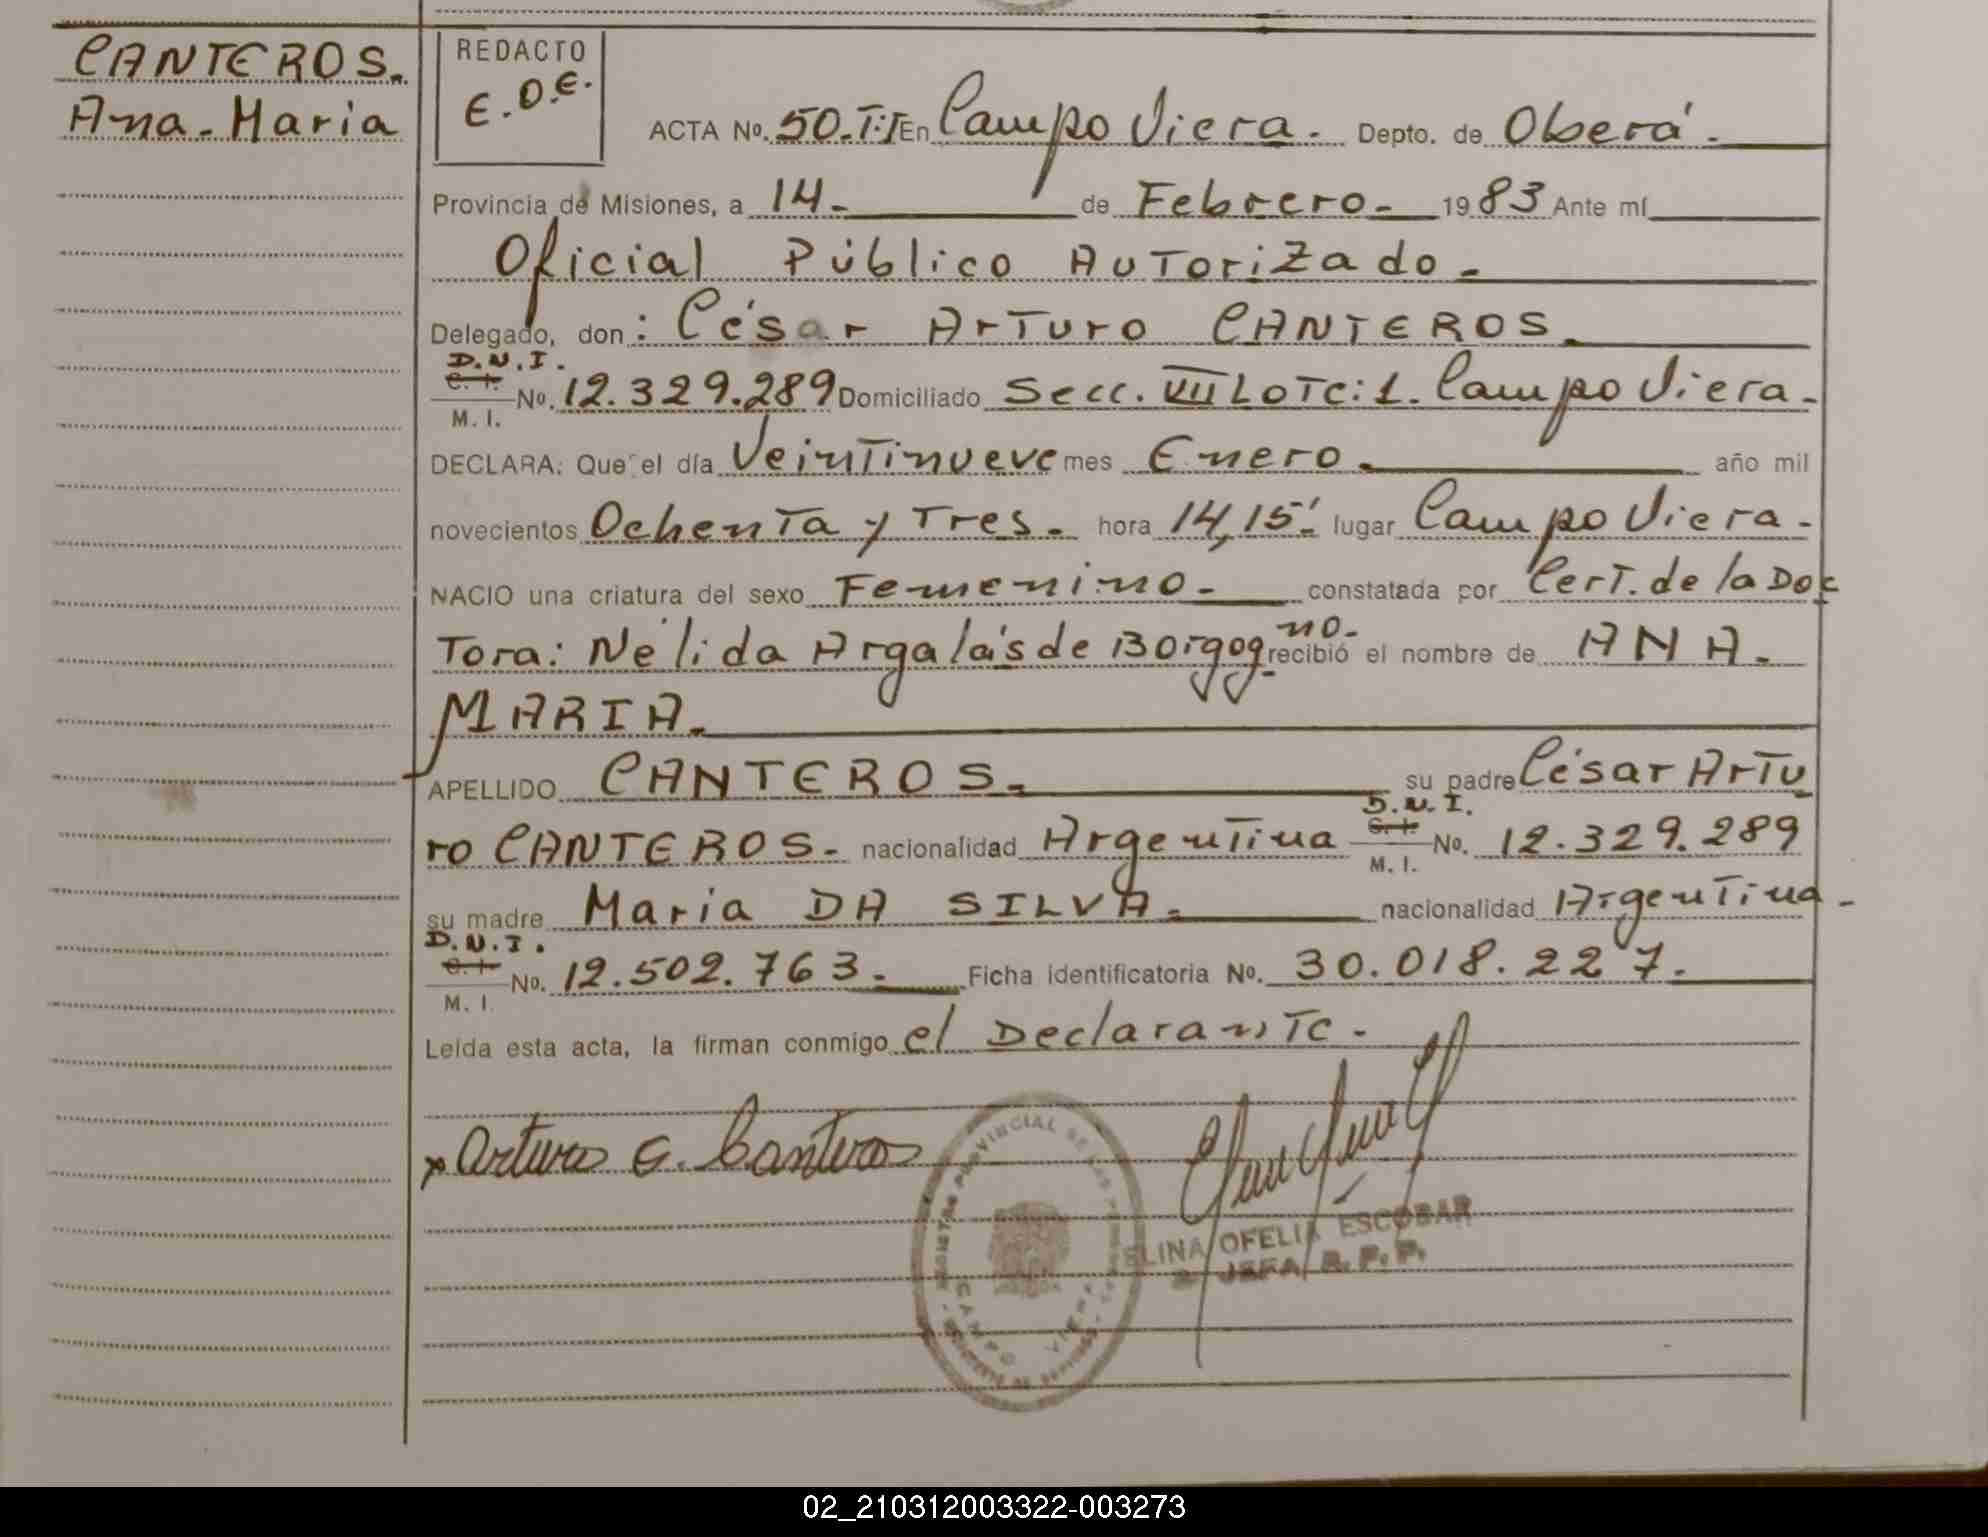 CANTEROS.
Ana-Maria
REDACTO
E.O.E.
ACTA Nº. 50.T:I En Campo Viera. Depto. de Oberá.
Provincia de Misiones, a 14. de Febrero. 1983 Ante mí
Oficial Público Autorizado.
Delegado, don: César Arturo CANTEROS.
D.N.I.
C. I.
M. I. Nº. 12.329.289 Domiciliado Secc. VII LoTe:1. Campo Viera.
DECLARA: Que el día Veintinueve mes Enero. año mil
novecientos Ochenta y Tres. hora 14,15'. lugar Campo Viera.
NACIO una criatura del sexo Femenino. constatada por Cert. de la Doc
Tora: Nélida Argalás de Borgogno. recibió el nombre de ANA.
MARIA.
APELLIDO CANTEROS. su padre César Artu
D.N.I.
ro CANTEROS. nacionalidad Argentina C. I. M. I. Nº. 12.329.289
su madre Maria DA SILVA. nacionalidad Argentina.
D.N.I.
C. I. M. I. Nº. 12.502.763. Ficha identificatoria Nº. 30.018.227.
Leída esta acta, la firman conmigo el Declarante.
x Arturo C. Canteros
REGISTRO PROVINCIAL DE LAS
CAMPO VIERA
ELINA OFELIA ESCOBAR
JEFA R.P.P.
02_210312003322-003273